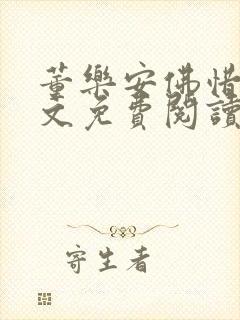 董樂安佛惜
文免費閱讀
寄生者